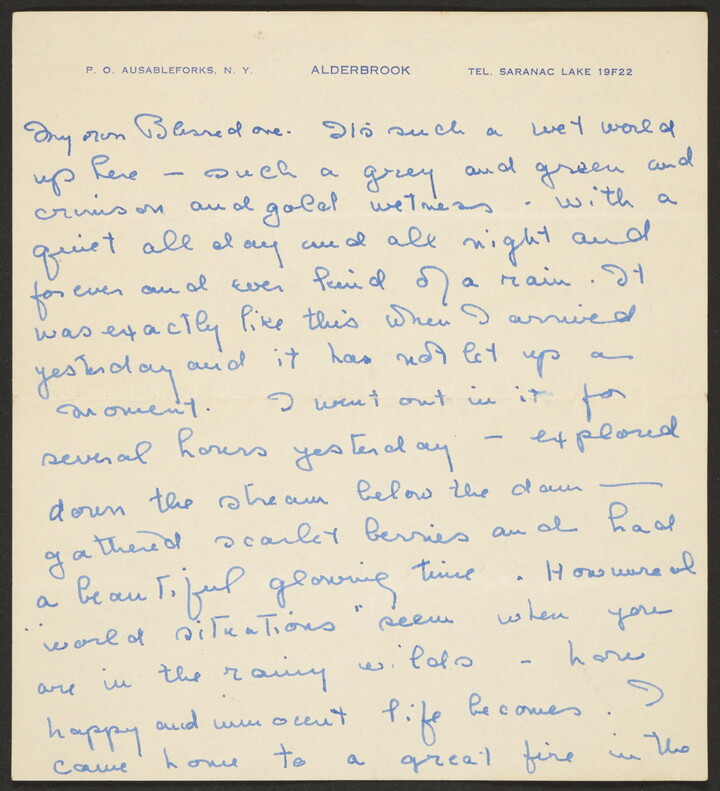 P. O. AUSABLEFORKS, N. Y. ALDERBROOK TEL. SARANAC LAKE 19F22
My own Blessed one. It's such a wet world
up here – such a grey and green and
crimson and gold wetness - with a
quiet all day and all night and
forever and ever kind of a rain. It
was exactly like this when I arrived
yesterday and it has not let up a
moment. I went out in it for
several hours yesterday – explored
down the stream below the dam —
gathered scarlet berries and had
a beautiful glowing time. How unreal
"world situations" seem when you
are in the rainy wilds - how
happy and innocent life becomes. I
came home to a great fire in the